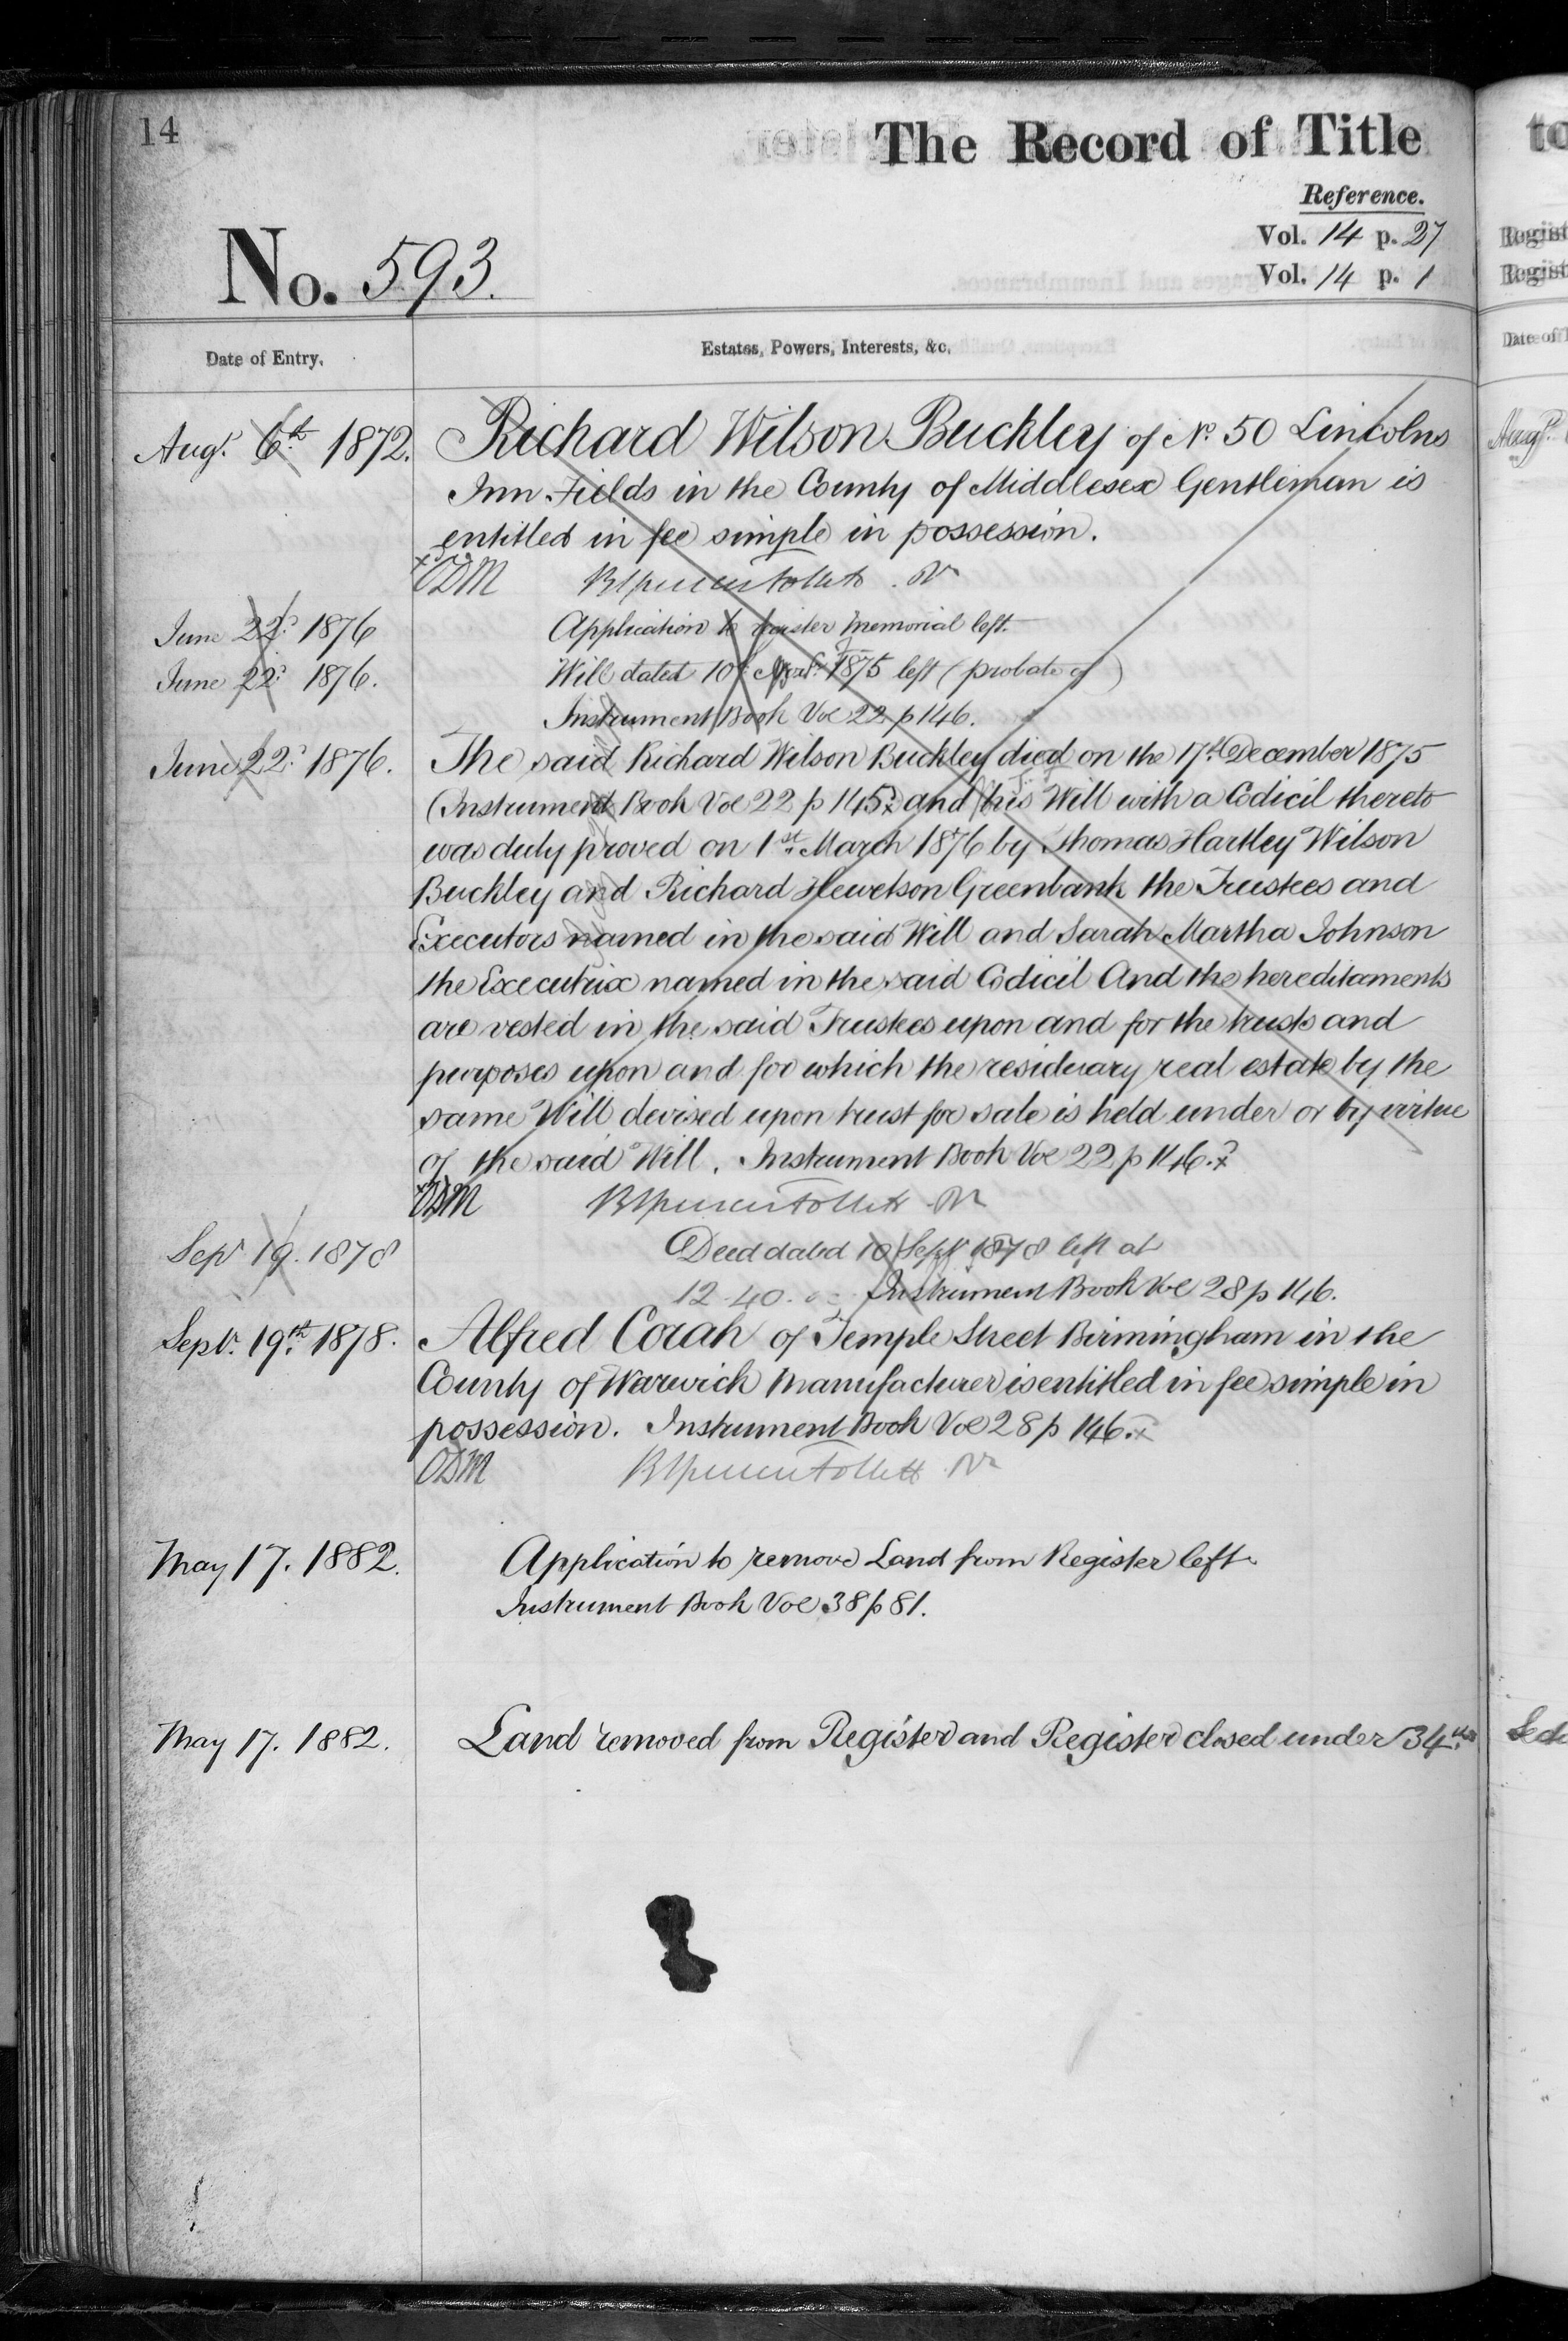 14
The Record of Title
Reference.
Vol. 14 p. 27
No. 593.
Vol. 14 p. 1
Date of Entry.
Estates, Powers, Interests, &c.
Augt. 6th 1872.
Richard Wilson Buckley of No. 50 Lincolns
Inn Fields in the County of Middlesex Gentleman is
entitled in fee simple in possession.
ODM
June 22d 1876
Application to register Memorial left.
June 22d 1876.
Will dated 10th 1875 left (probate of)
Instrument Book Vol 22 p 146.
June 22d 1876.
The said Richard Wilson Buckley died on the 17th December 1875
(Instrument Book Vol 22 p 145) and his Will with a Codicil thereto
was duly proved on 1st March 1876 by Thomas Hartley Wilson
Buckley and Richard Hewetson Greenbank the Trustees and
Executors named in the said Will and Sarah Martha Johnson
the Executrix named in the said Codicil And the hereditaments
are vested in the said Trustees upon and for the trusts and
purposes upon and for which the residuary real estate by the
same Will devised upon trust for sale is held under or by virtue
of the said Will. Instrument Book Vol 22 p 146.
ODM
Sept 19. 1878
Deed dated 10 Sept 1878 left at
12.40. Instrument Book Vol 28 p 146.
Sept. 19th 1878.
Alfred Corah of Temple Street Birmingham in the
County of Warwick Manufacturer is entitled in fee simple in
possession. Instrument Book Vol 28 p 146.
ODM
May 17. 1882.
Application to remove Land from Register left
Instrument Book Vol 38 p 81.
May 17. 1882.
Land removed from Register and Register closed under 34th